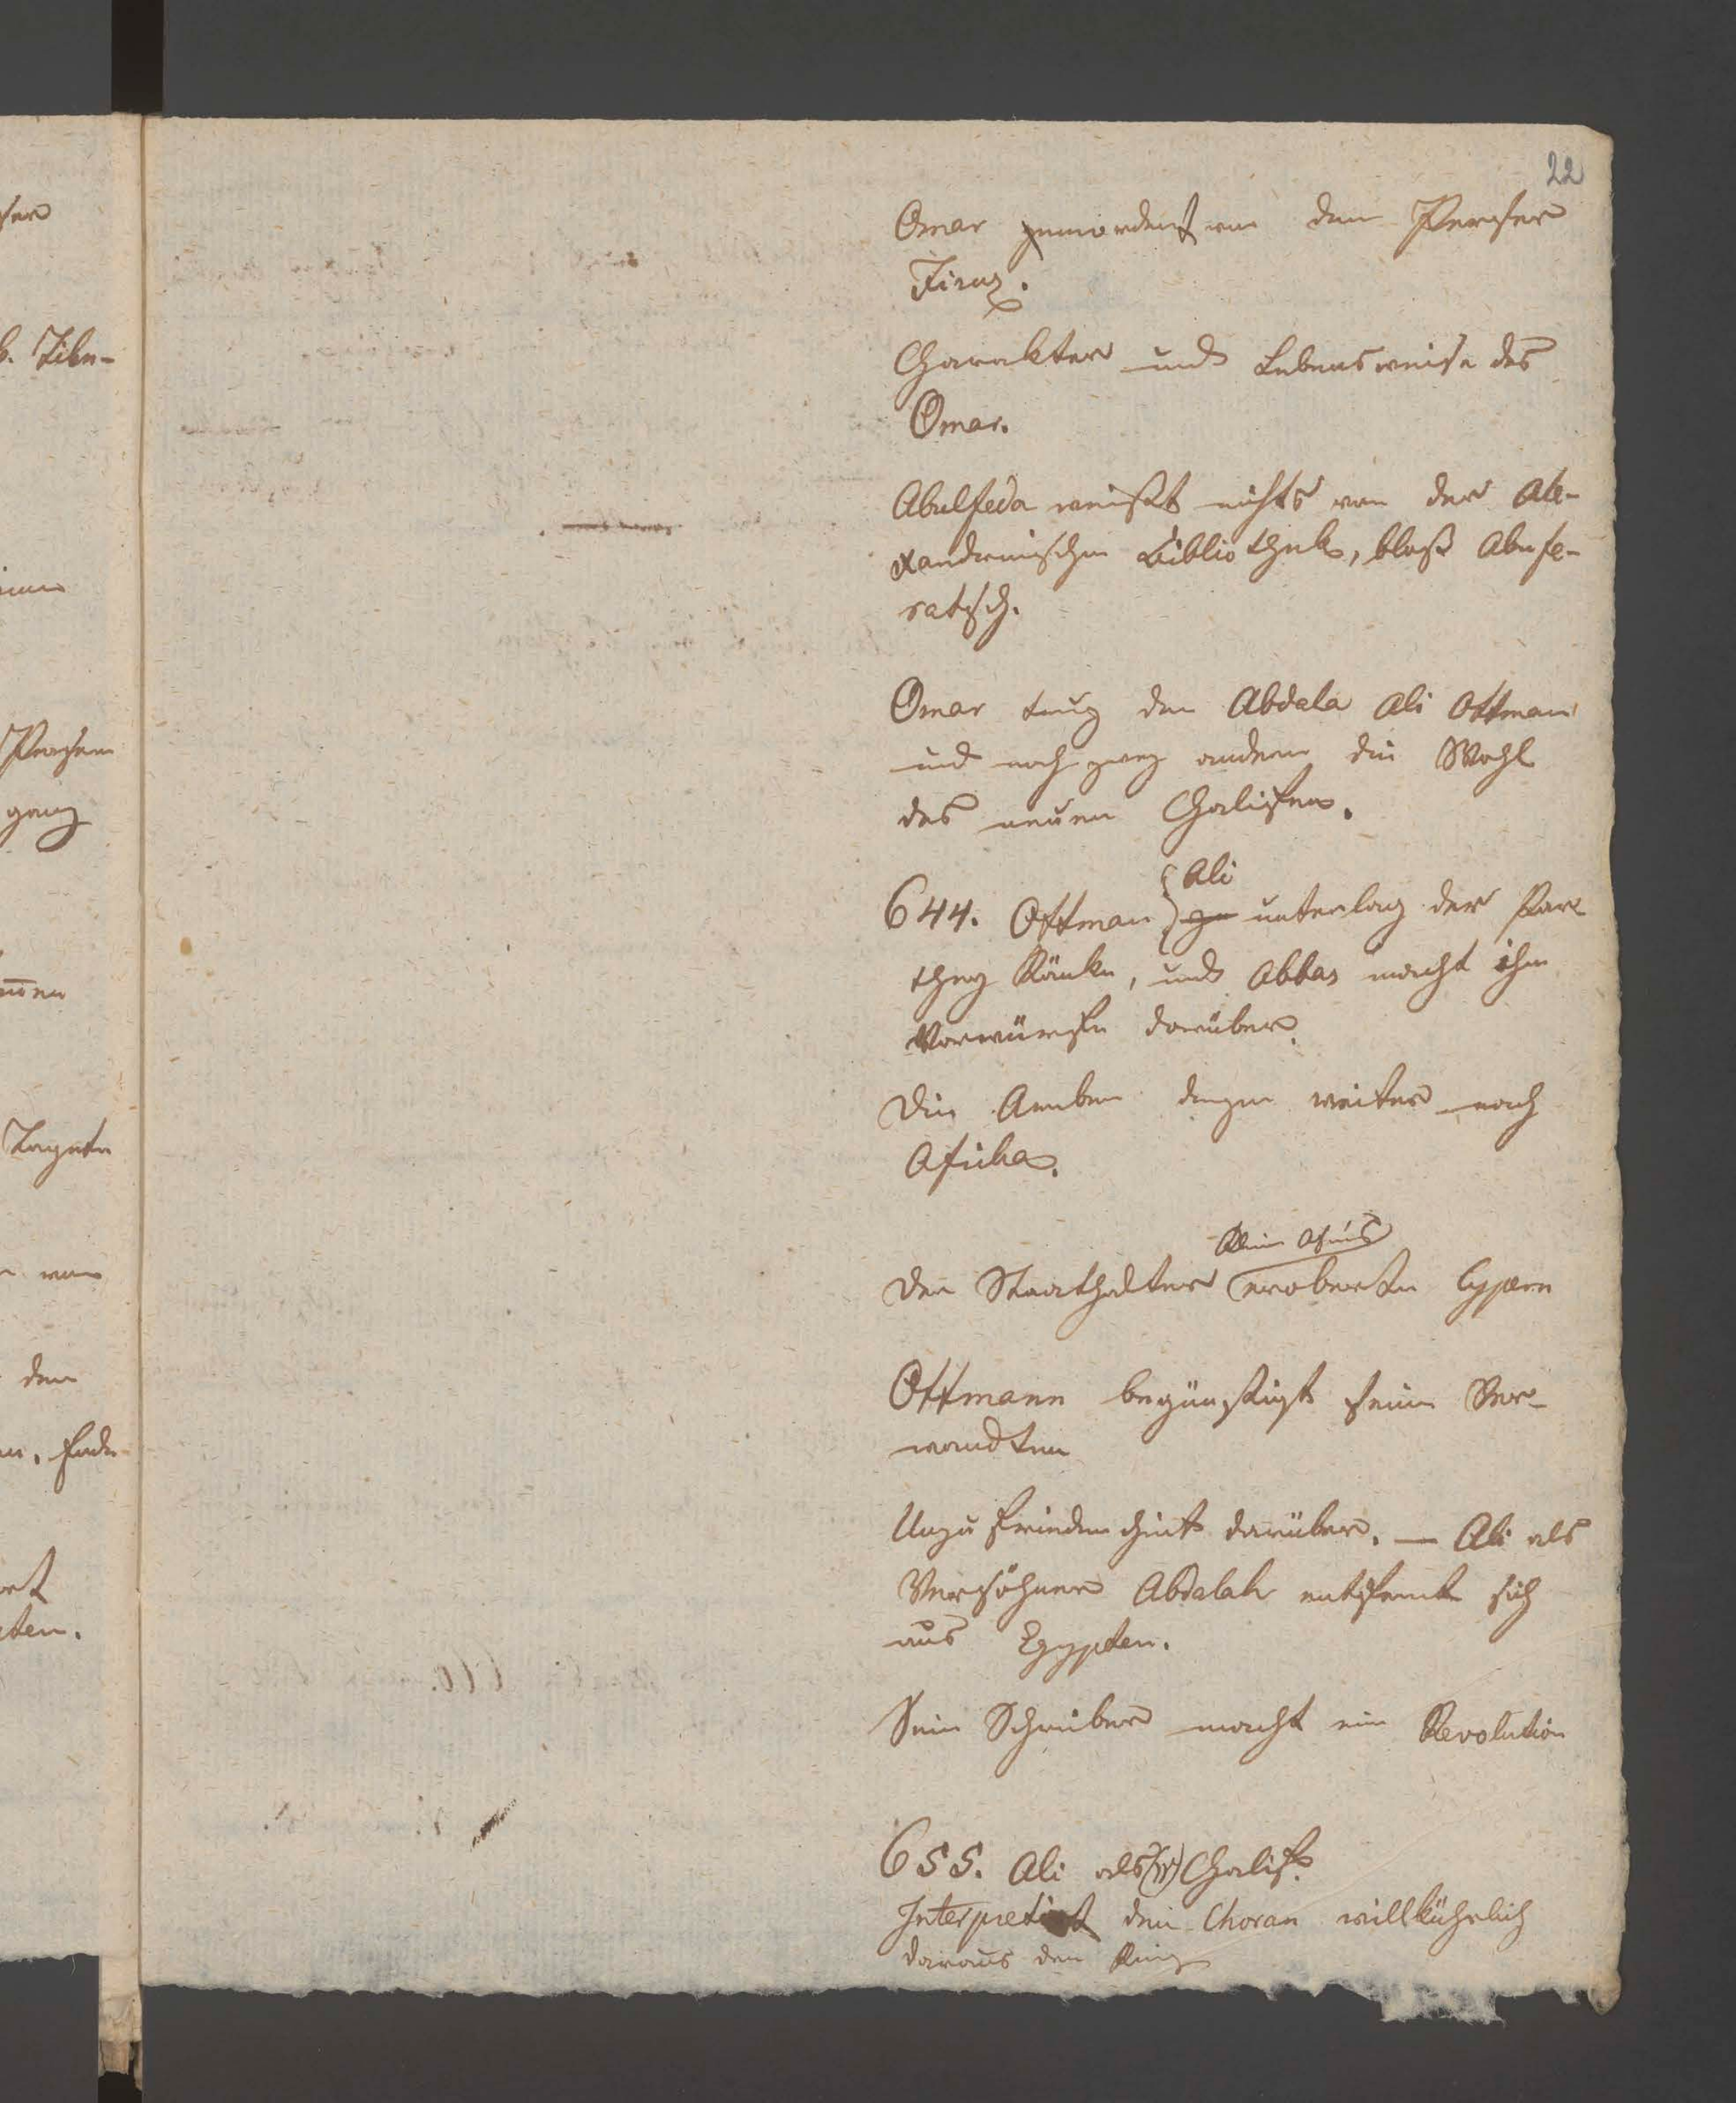 22
Omar gemordert von dem Perser
Firuz.
Charakter und Lebensweise des
Omar.
Abulfeda weißt nichts von der Ale-
xandrinischen Bibliothek, bloß Abufe-
ratsch.
Omar trug den Abdala Ali Ottman
und noch zwey andern die Wahl
des neuen Chalifen.
Ali
644. Ottman unterlag der Par
they Ränke, und Abbas macht ihm
Vorwürfe darüber.
Die Araber dringen weiter nach
Afrika.
Der Staathalter eroberte Cypern
Ottmann begünstigt seine Ver-
wandten
Unzufriedenheit darüber. — Ali als
Versöhner Abdalah entfernt sich
aus Egypten.
Sein Schreiber macht ein Revolution
655. Ali als Chalif.
Interpretirt den Choran willkührlich
daraus der Krieg